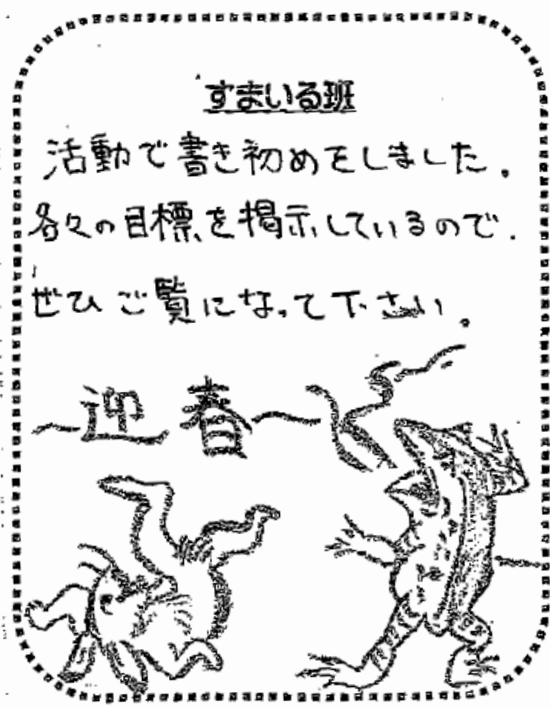 すまいる班
活動で書き初めをしました。
各々の目標を掲示しているので、
ぜひご覧になって下さい。
迎春